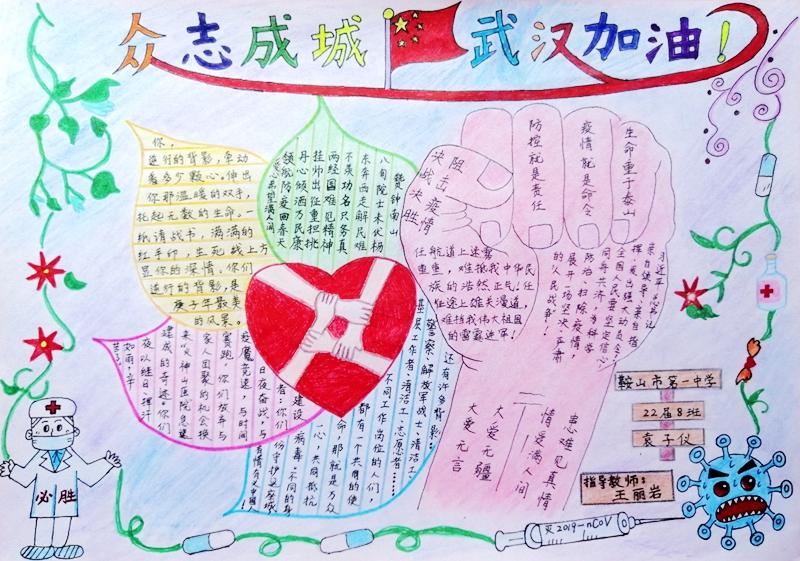 众志成城
武汉加油！
你，
逆行的背影，牵动
着多少颗心。伸出
你那温暖的双手，
托起无数的生命。一
纸请战书，满满的
红手印，生死线上方
显你的深情。你们
逆行的背影，是
庚子年最美
的风景。
赞钟南山
八旬院士未伏杨
东奔西走解民难
不羡功名只务真
两经国难见精神
挂帅出征重担挑
丹心倾洒万民康
领航防疫回春天
阻击疫情
决战决胜
防控就是责任
疫情就是命令
生命重于泰山
任航道上迷雾
重重，难抵我中华民
族的浩然正气！任
征途上雄关漫道，
难挡我伟大祖国
的雷霆迸军！
习近平总书记
亲自领导、亲自指
挥，发出强大动员令：
全国人民要坚定信心
同舟共济，为科学
防治、扫除疫情，
展开一场坚决、严肃
的人民战争！
还有许多背影：
警察、解放军战士、清洁工、
基层工作者、清洁工、志愿者……
不同工作岗位的人们，
都有一个共同的使
命，那就是万众
一心，共同抵抗
病毒。不同的身
份守护这座城
建设者：你们
日夜奋战，与
疫魔竞速，与时间
赛跑。你们放弃与
家人团聚的机会换
来火神山医院急速
建成的奇迹。你们
夜以继日、挥汗
如雨，辛
苦了。
患难见真情
情爱满人间
大爱无疆
大爱无言
鞍山市第一中学
22届8班
袁子仪
指导教师：
王丽岩
必胜
灭2019-nCoV